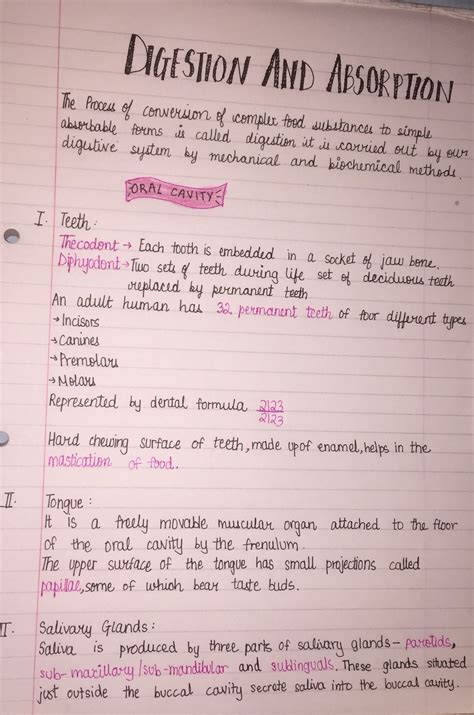 DIGESTION AND ABSORPTION
The Process of conversion of complex food substances to simple
absorbable forms is called digestion it is carried out by our
digestive system by mechanical and biochemical methods.
ORAL CAVITY
I. Teeth:
Thecodont → Each tooth is embedded in a socket of jaw bone.
Diphyodont → Two sets of teeth during life set of deciduous teeth
replaced by permanent teeth
An adult human has 32 permanent teeth of four different types
→ Incisors
→ Canines
→ Premolars
→ Molars
Represented by dental formula 2123
2123
Hard chewing surface of teeth, made up of enamel, helps in the
mastication of food.
II. Tongue:
It is a freely movable muscular organ attached to the floor
of the oral cavity by the frenulum.
The upper surface of the tongue has small projections called
papillae, some of which bear taste buds.
II. Salivary Glands:
Saliva is produced by three parts of salivary glands- parotids,
sub-maxillary/sub-mandibular and sublinguals. These glands situated
just outside the buccal cavity secrete saliva into the buccal cavity.